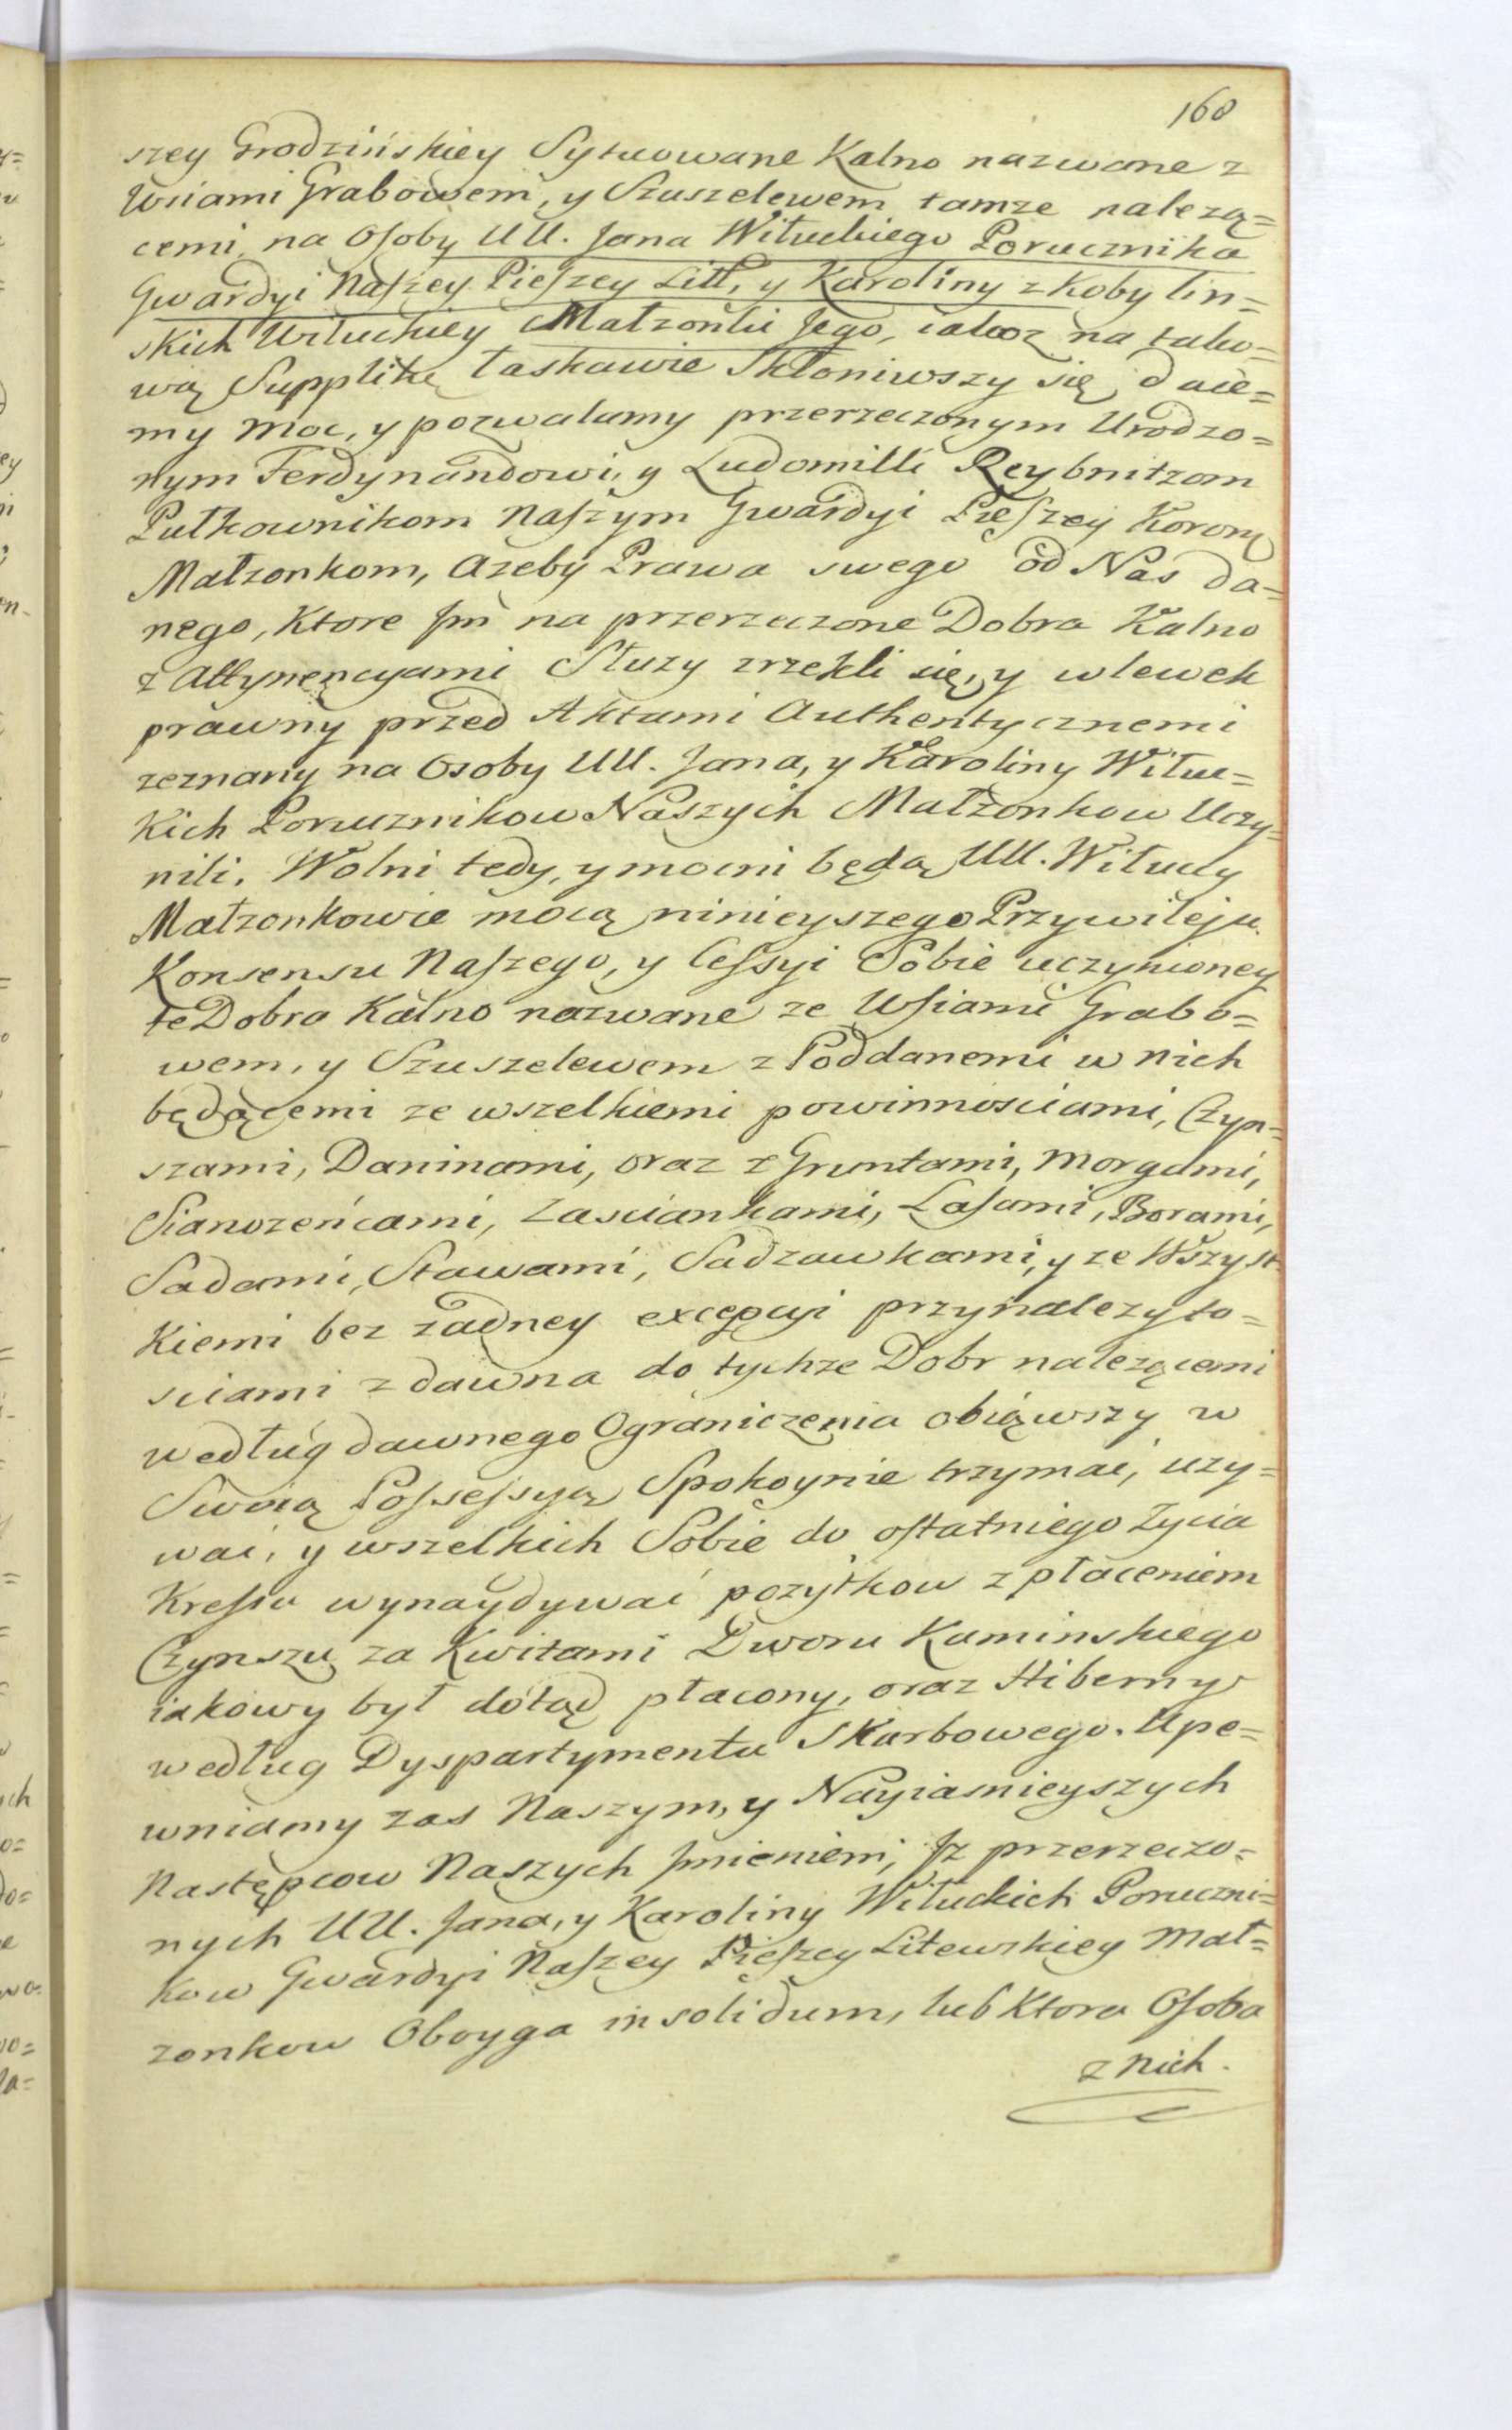 160
szey Grodzińskiey Sytuowane Kalno nazwane z
Wsiami Grabowem, y Szuszelewem tamze nalezą=
cemi, na Osoby UU. Jana Wiłuckiego Porucznika
Gwardyi Naszey Pieszey Litt, y Karoliny z Kobylin=
skich Wiłuckiey Małzonki Jego, na tako=
wą Supplikę łaskawie Skłoniwszy się, daie=
my moc, y pozwalamy przerzeczonym Urodzo=
nym Ferdynandowi, y Ludomilli Reybnitzom
Pułkownikom Naszym Gwardyi Pieszey Korony
Małzonkom, Azeby Prawa swego od Nas da=
nego, Ktore Jm na przerzeczone Dobra Kalno
z Attynencyami Słuzy zrzekli się, y wlewek
prawny przed Aktami Authentycznemi
zeznany na Osoby UU. Jana, y Karoliny Wiłuc=
kich Porucznikow Naszych Małzonkow Uczy=
nili. Wolni tedy, y mocni będą UU. Wiłuccy
Małzonkowie mocą ninieyszego Przywileju
Konsensu Naszego, y Cessyi Sobie uczynioney
te Dobra Kalno nazwane ze Wsiami Grabo=
wem, y Szuszelewem z Poddanemi w nich
będącemi ze wszelkiemi powinnosciami, Czyn=
szami, Daninami, oraz z Gruntami, morgami,
Sianozeńcami, Zasciankami, Lasami, Borami,
Sadami, Stawami, Sadzawkami, y ze Wszyst
Kiemi bez zadney excepcyi przynalezyto=
sciami z dawna do tychze Dobr nalezącemi
według dawnego Ograniczenia obiąwszy w
Swoią Possessyą Spokoynie trzymać, uzy=
wać, y wszelkich Sobie do ostatniego Zycia
Kressu wynaydywać pozytkow z płaceniem
Czynszu za Kwitami Dworu Kaminskiego
iakowy był dotąd płacony, oraz Hiberny
według Dyspartymentu Skarbowego. Upe=
wniamy zas Naszym, y Nayiasnieyszych
Następcow Naszych Jmieniem, Jz przerzeczo=
nych UU. Jana, y Karoliny Wiłuckich Poruczni=
kow Gwardyi Naszey Pieszey Litewskiey Mał=
zonkow Oboyga in solidum, lub Ktora Osoba
z nich.